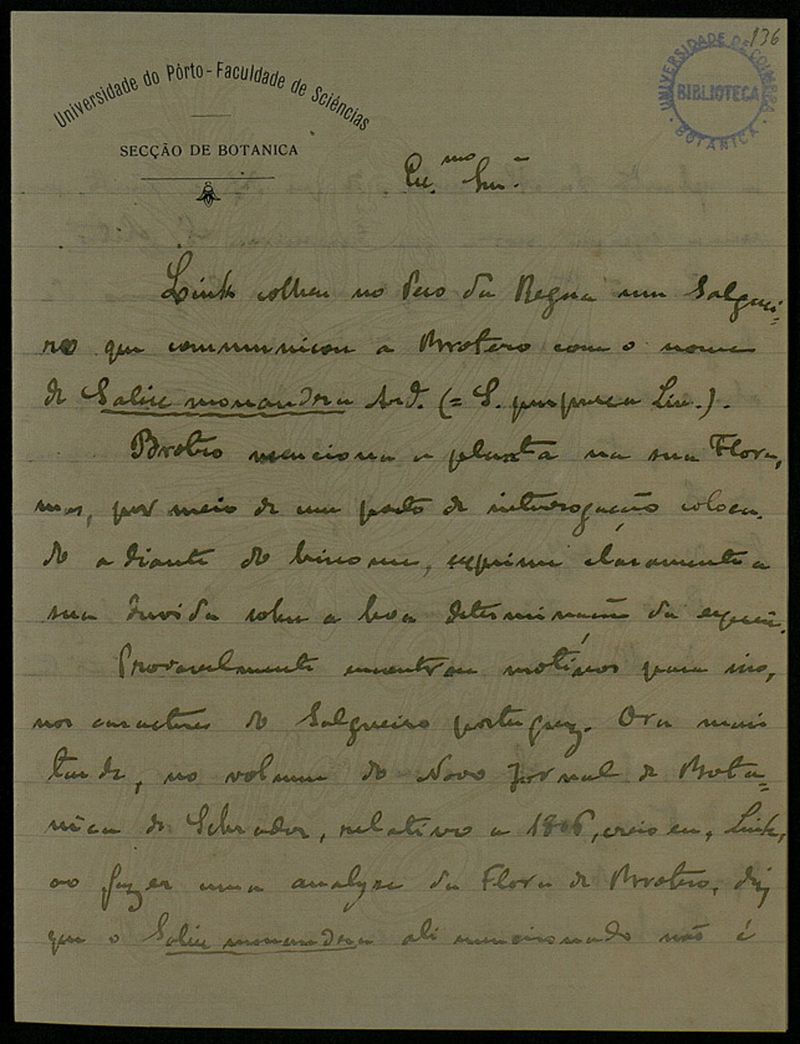 136
UNIVERSIDADE DE COIMBRA
BIBLIOTECA
BOTANICA
Universidade do Pôrto - Faculdade de Sciências
SECÇÃO DE BOTANICA
Ex.mo Snr.
Link colheu no Peso da Regua um Salguei-
ro que communicou a Brotero com o nome
de Salix monandra Ard. (= S. purpurea Lin.).
Brotero menciona a planta na sua Flora,
mas, por meio de um ponto de interrogação coloca-
do adiante do binome, exprime claramente a
sua duvida sobre a boa determinação da especie.
Provavelmente encontrou motivos para isso,
nos caracteres do Salgueiro portuguez. Ora mais
tarde, no volume do Novo Jornal de Bota-
nica de Schrader, relativo a 1806, creio eu, Link,
ao fazer uma analyse da Flora de Brotero, diz
que o Salix monandra ali mencionado não é